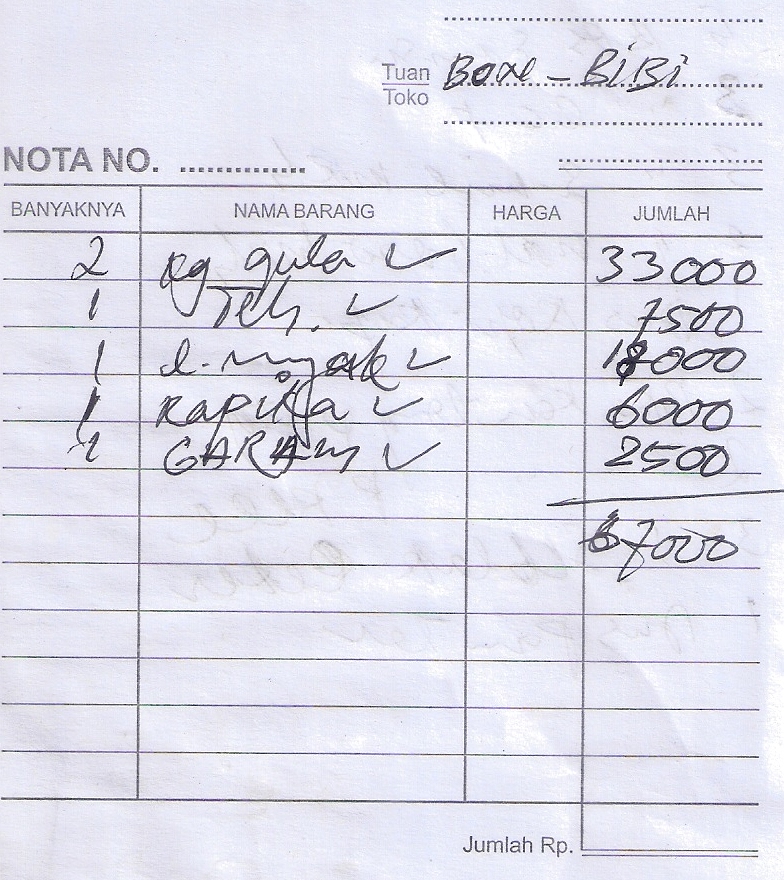 Tuan
Toko
- BiBi
NOTA NO. ....................
BANYAKNYA NAMA BARANG HARGA JUMLAH
2 kg gula ✓ 33000
1 Teh. ✓ 7500
1 l. minyak ✓ 18000
1 Rapika ✓ 6000
1 GARAM ✓ 2500
67000
Jumlah Rp.